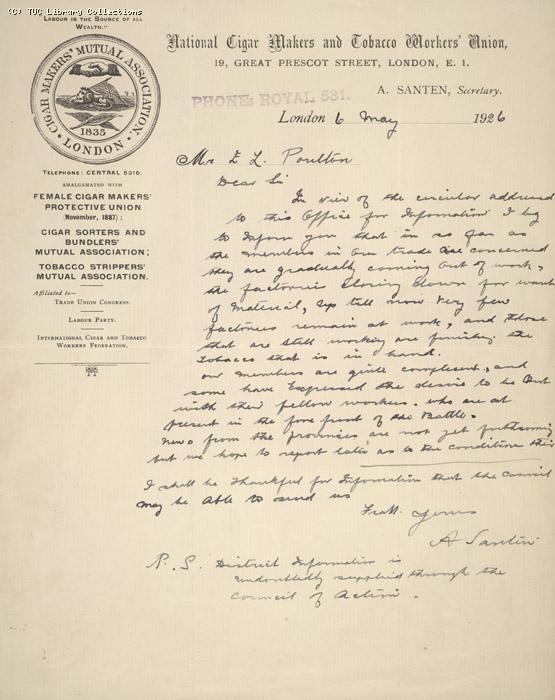 (C) TUC Library Collections
"Labour is the Source of all
Wealth."
CIGAR MAKERS' MUTUAL ASSOCIATION.
1835
LONDON
Telephone: CENTRAL 5310.
AMALGAMATED WITH
FEMALE CIGAR MAKERS'
PROTECTIVE UNION
(November, 1887);
CIGAR SORTERS AND
BUNDLERS'
MUTUAL ASSOCIATION;
TOBACCO STRIPPERS'
MUTUAL ASSOCIATION.
Affiliated to—
Trade Union Congress.
Labour Party.
International Cigar and Tobacco
Workers Federation.
National Cigar Makers and Tobacco Workers' Union,
19, GREAT PRESCOT STREET, LONDON, E. 1.
PHONE: ROYAL 531.
A. SANTEN, Secretary.
London 6 May 1926
Mr E L. Poulton
Dear Sir
In view of the circular addressed
to this Office for Information I beg
to Inform you that in so far as
the members in our trade are concerned
they are gradually coming out of work,
the factories closing down for want
of Material, up till now very few
factories remain at work, and those
that are still working are finishing the
Tobacco that is in hand.
our members are quite complacent, and
some have Expressed the desire to be out
with their fellow workers. who are at
present in the fore front of the Battle.
News from the provinces are not yet forthcoming
but we hope to report later as to the condition their
I shall be thankful for Information that the Council
may be able to send us
Frat. yours
A Santen
P. S. District Information is
undoubtedly supplied through the
Council of Action.